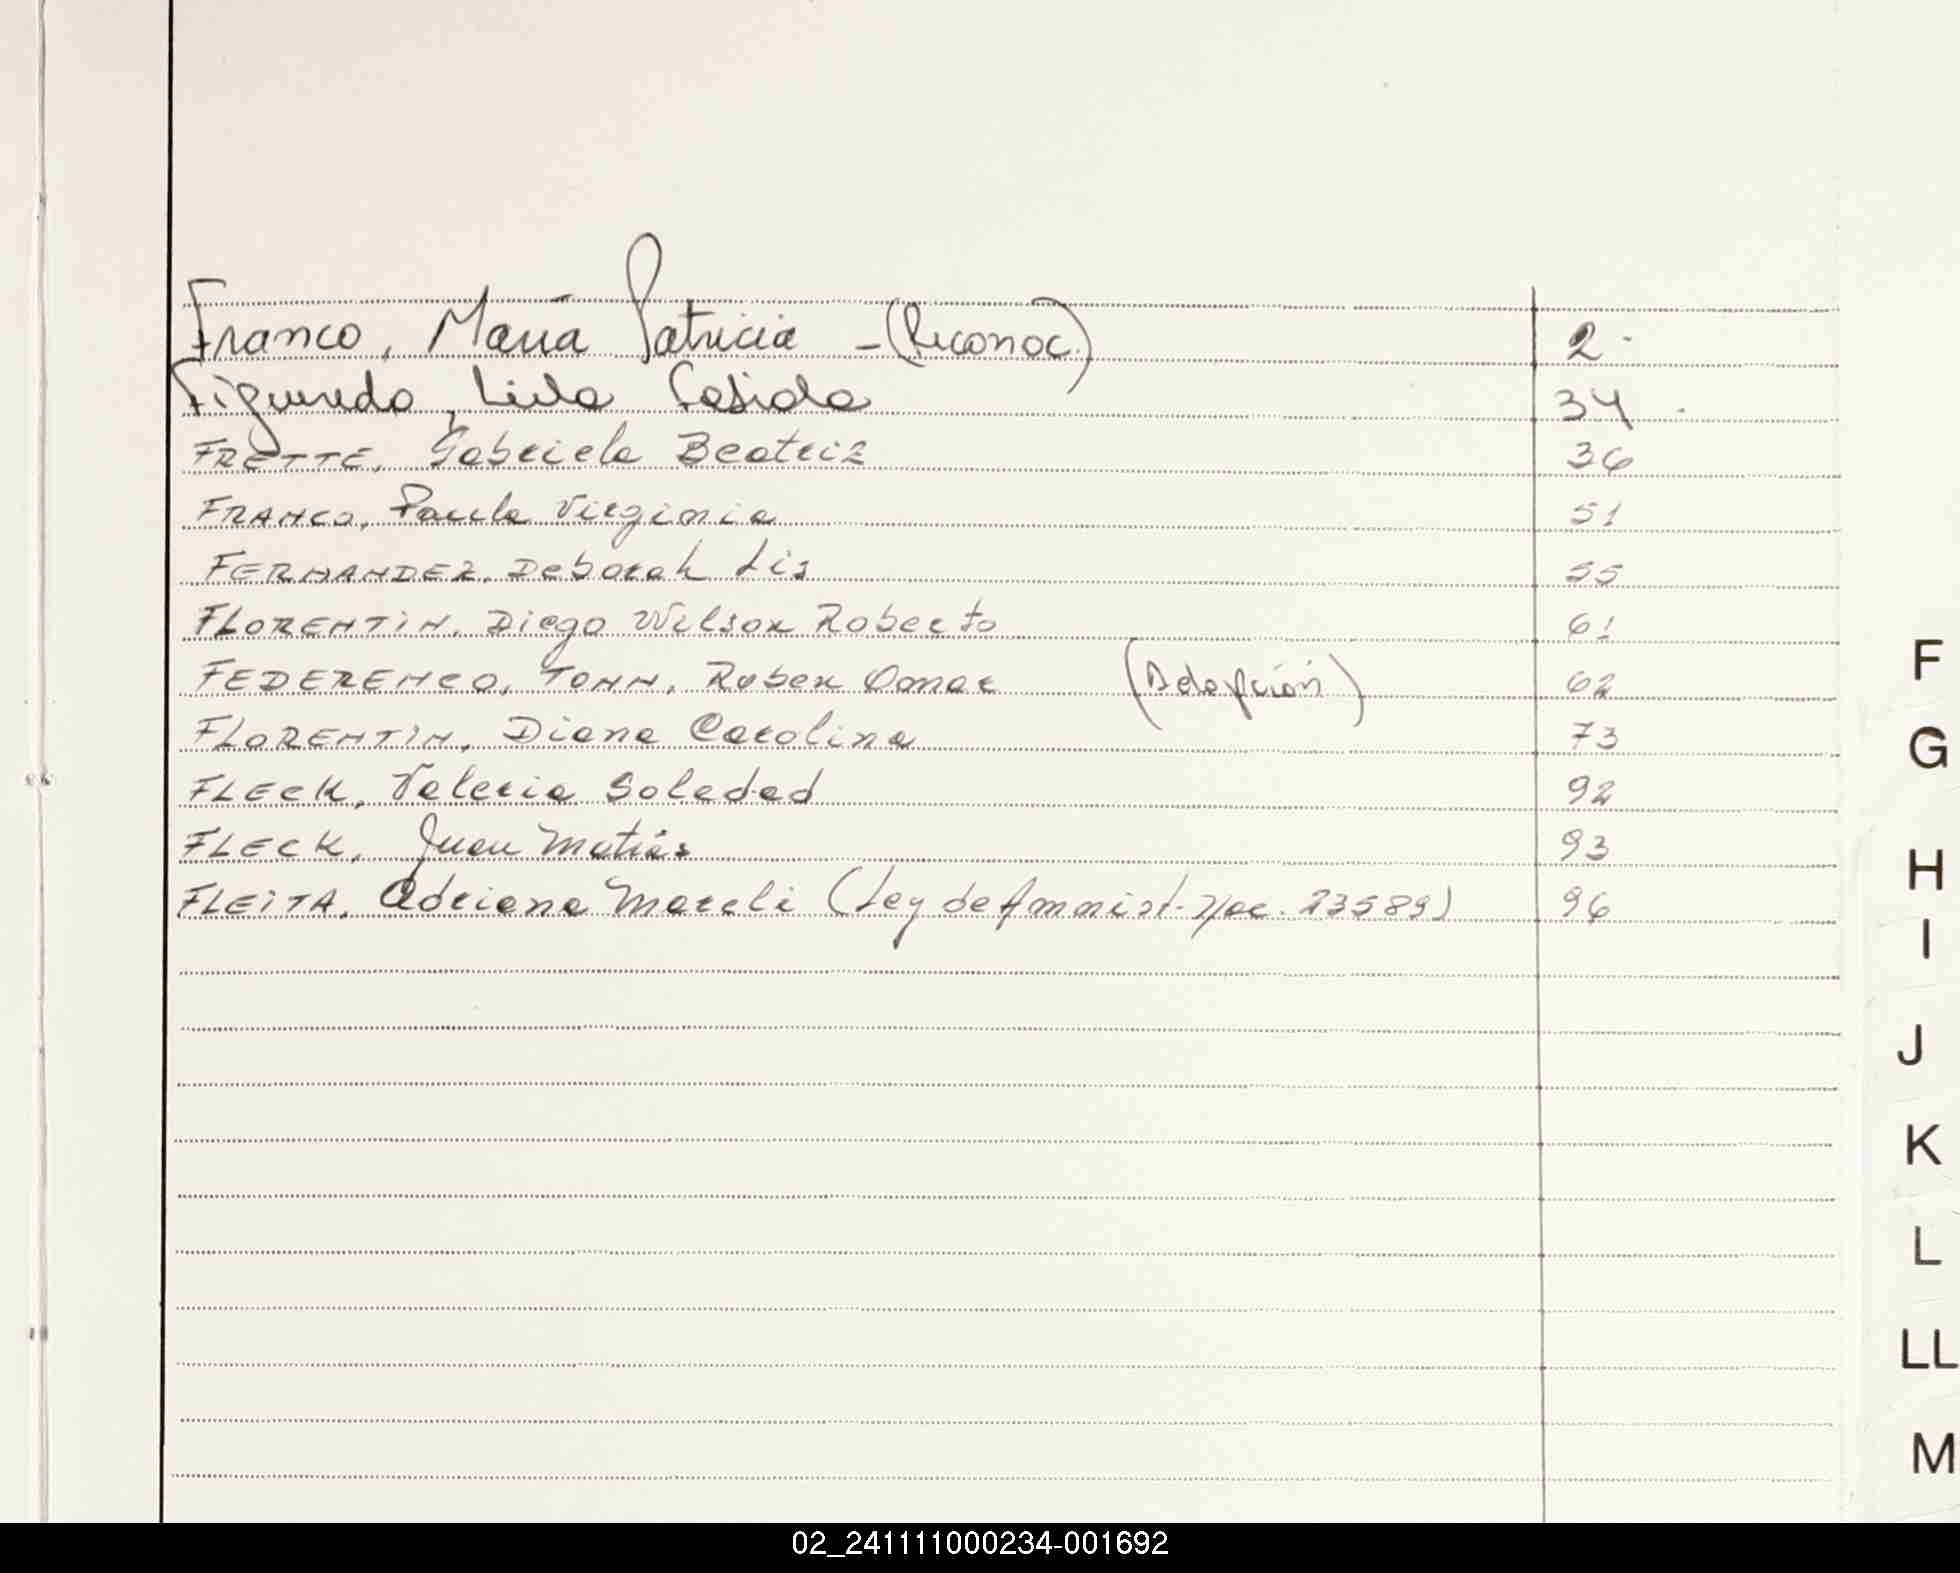 Franco, María Patricia - (Reconoc.) 2.
Figueredo, Lida Fabiola 34.
FRETTE, Gabriela Beatriz 36
FRANCO, Paula Virginia 51
FERNANDEZ, Deborah Lis 55
FLORENTIN, Diego Wilson Roberto 61
FEDERENCO, TONN, Ruben Omar (Adopción) 62
FLORENTIN, Diana Carolina 73
FLECK, Valeria Soledad 92
FLECK, Juan Matías 93
FLEITA, Adriana Mareli (Ley de Amnist. Nac. 23589) 96
F
G
H
I
J
K
L
LL
M
02_241111000234-001692